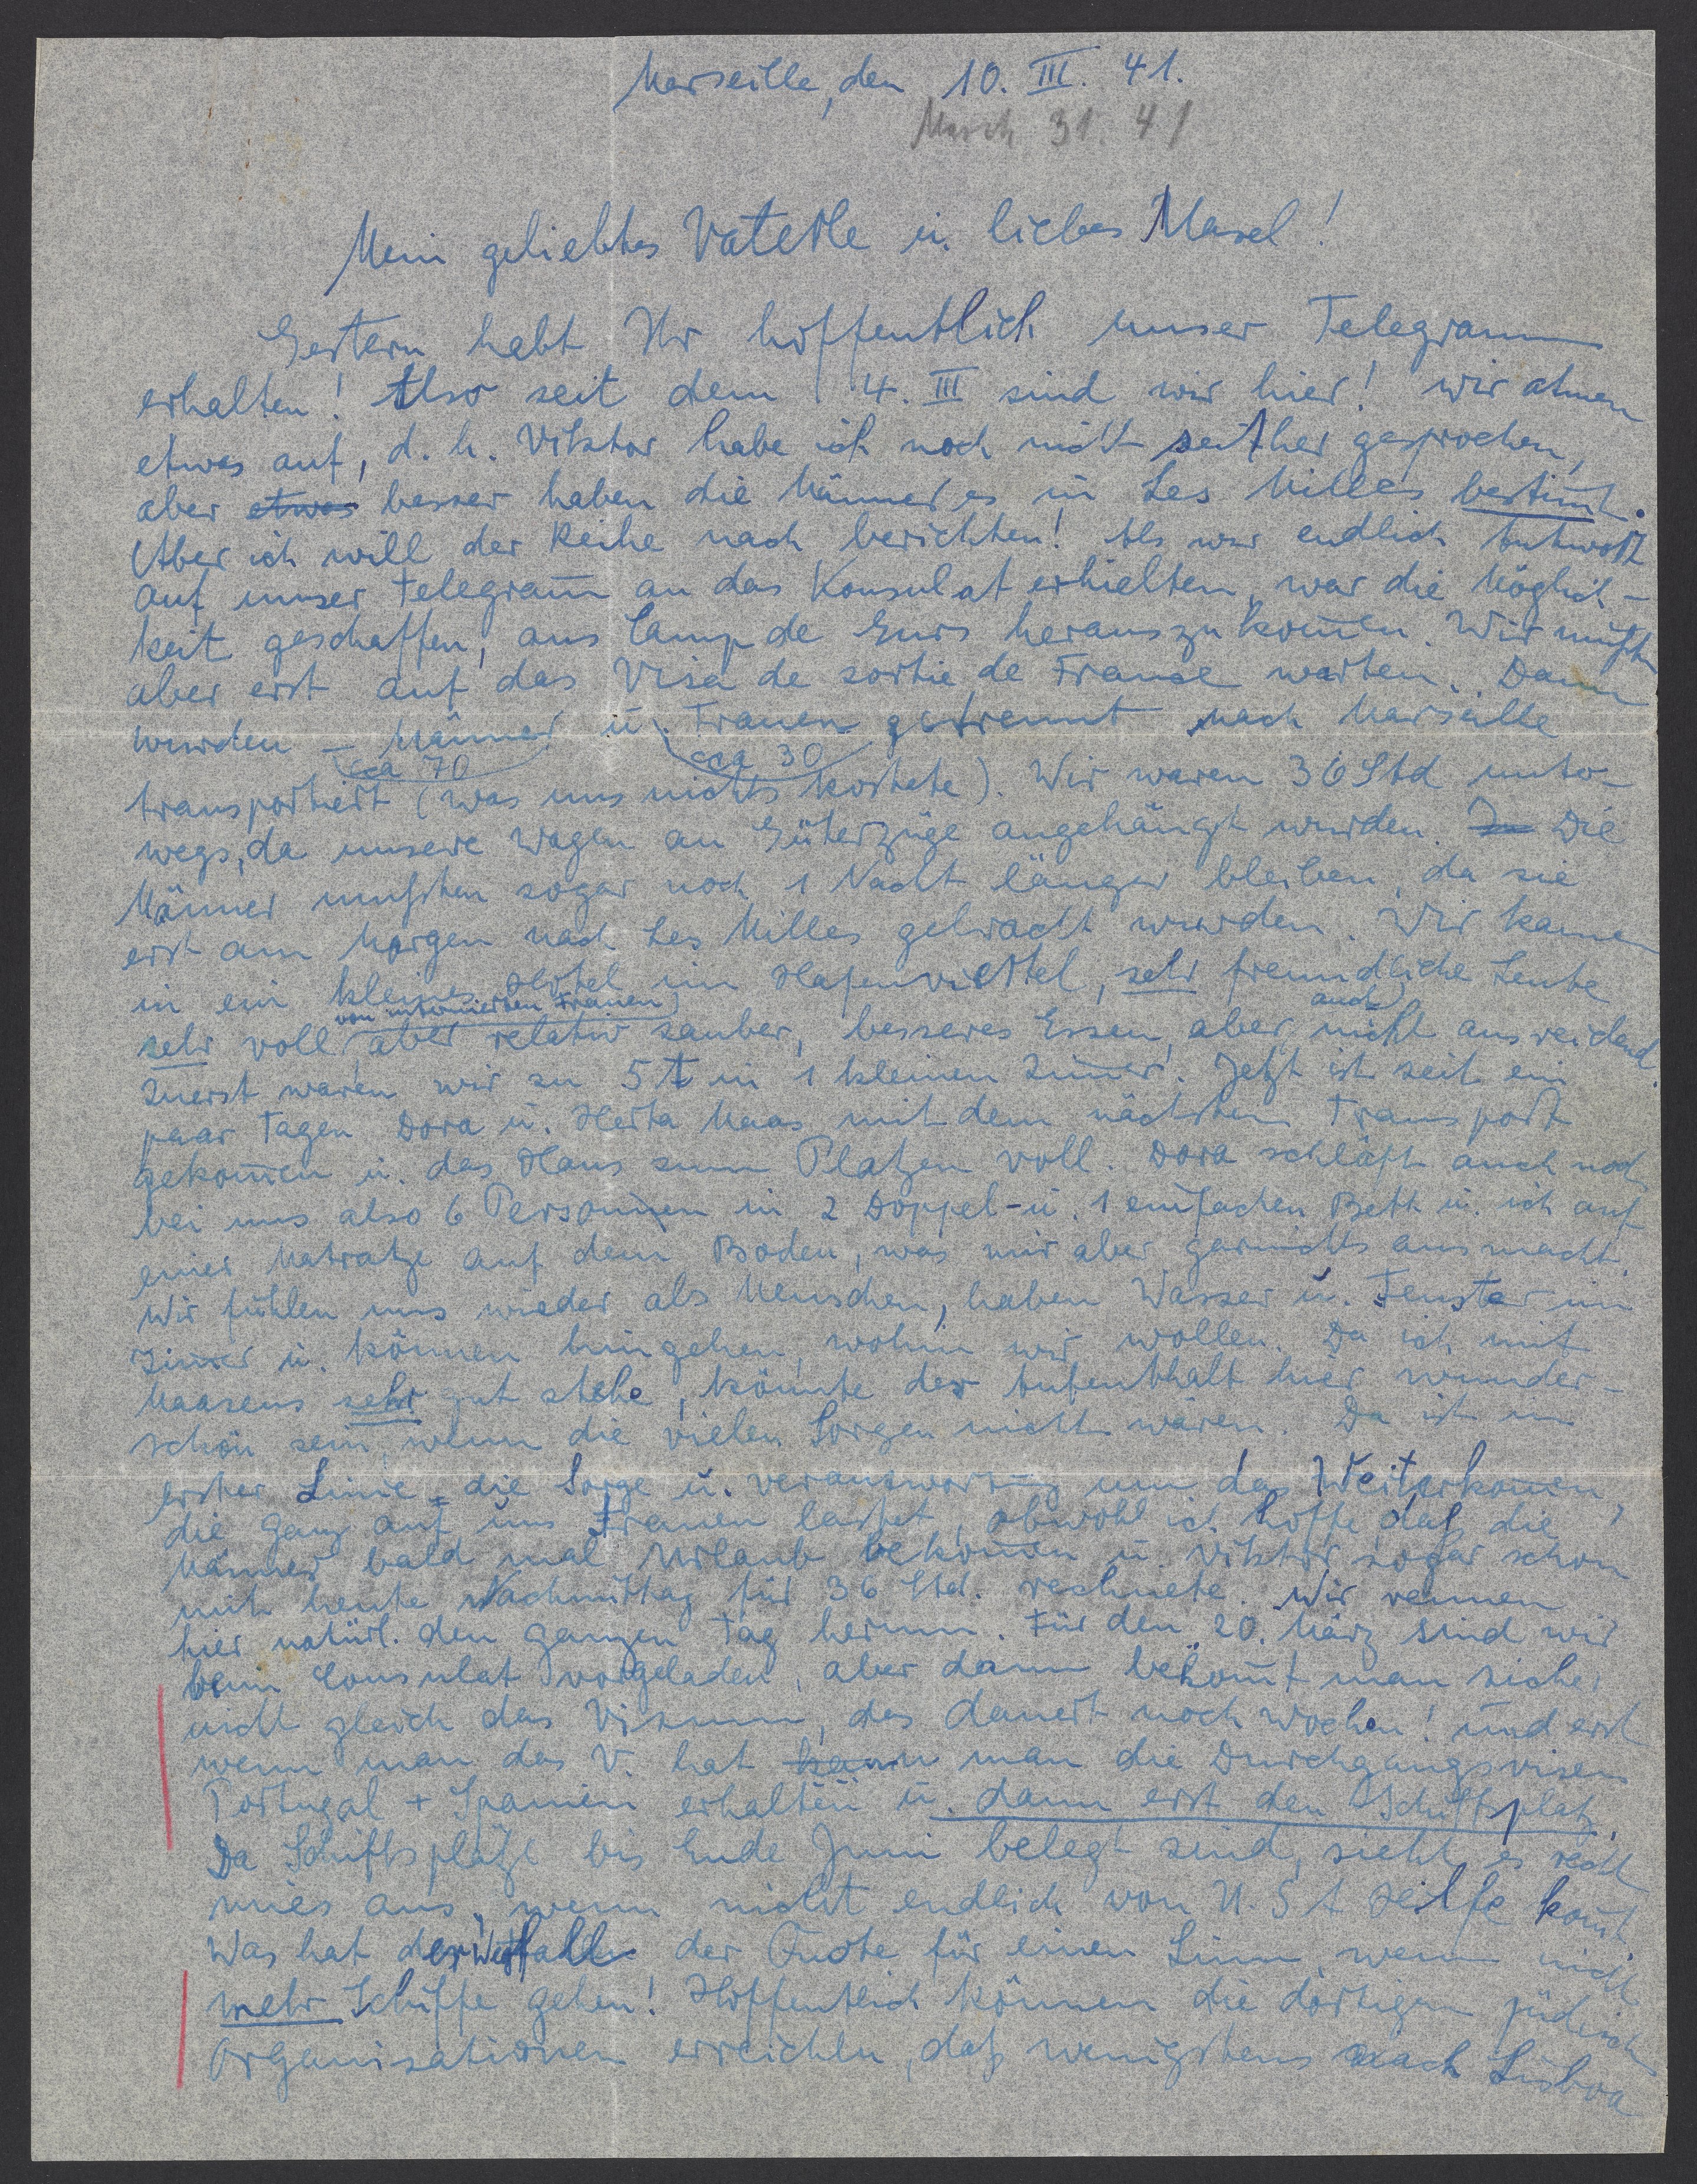 Marseille, den 10. III. 41.
March 31. 41
Mein geliebtes Vaterle u. liebes Masel!
Gestern habt Ihr hoffentlich unser Telegramm
erhalten! Also seit dem 4. III sind wir hier! Wir atmen
etwas auf, d. h. Viktor habe ich noch nicht seither gesprochen,
aber etwas besser haben die Männer es in Les Milles bestimt.
Aber ich will der Reihe nach berichten! Als wir endlich Antwort
auf unser Telegram̅ an das Konsulat erhielten, war die Möglich-
keit geschaffen, aus Camp de Gurs herauszukom̅en. Wir mußten
aber erst auf das Visa de sortie de France warten. Dann
wurden – Männer u. Frauen getrennt nach Marseille
ca 70 cca 30
transportiert (was uns nichts kostete). Wir waren 36 Std unter-
wegs, da unsere Wagen an Güterzüge angehängt wurden. Die
Männer mußten sogar noch 1 Nacht länger bleiben, da sie
erst am Morgen nach Les Milles gebracht wurden. Wir kamen
in ein kleines Hotel im Hafenviertel, sehr freundliche Leute
von internierten Frauen auch
sehr voll, aber relativ sauber, besseres Essen, aber nicht ausreichend.
Zuerst waren wir zu 5t in 1 kleinen Zim̅er. Jetzt ist seit ein
paar Tagen Dora u. Herta Maas mit dem nächsten Transport
gekom̅en u. das Haus zum Platzen voll. Dora schläft auch noch
bei uns also 6 Personen in 2 Doppel- u. 1 einfachen Bett u. ich auf
einer Matratze auf dem Boden, was mir aber garnichts ausmacht.
Wir fühlen uns wieder als Menschen, haben Wasser u. Fenster im
Zim̅er u. können hingehen, wohin wir wollen. Da ich mit
Maasens sehr gut stehe, könnte der Aufenthalt hier wunder-
schön sein, wenn die vielen Sorgen nicht wären. Da ist in
erster Linie die Sorge u. Verantwortung um das Weiterkom̅en,
die ganz auf uns Frauen lastet, obwohl ich hoffe daß die
Männer bald mal Urlaub bekom̅en u. Viktor sogar schon
mit heute Nachmittag für 36 Std. rechnete. Wir rennen
hier natürl. den ganzen Tag herum. Für den 20. März sind wir
beim Consulat vorgeladen, aber dann bekom̅t man sicher
nicht gleich das Visum, das dauert noch Wochen! und erst
wenn man das V. hat kann man die Durchgangsvisen
Portugal + Spanien erhalten u. dann erst den Schiffsplatz.
Da Schiffsplätze bis Ende Juni belegt sind, sieht es recht
mies aus, wenn nicht endlich von U.S.A Hilfe kom̅t.
Was hat der Wegfall der Quote für einen Sinn, wenn nicht
mehr Schiffe gehen! Hoffentlich können die dortigen jüdischen
Organisationen erreichen, daß wenigstens nach Lisboa